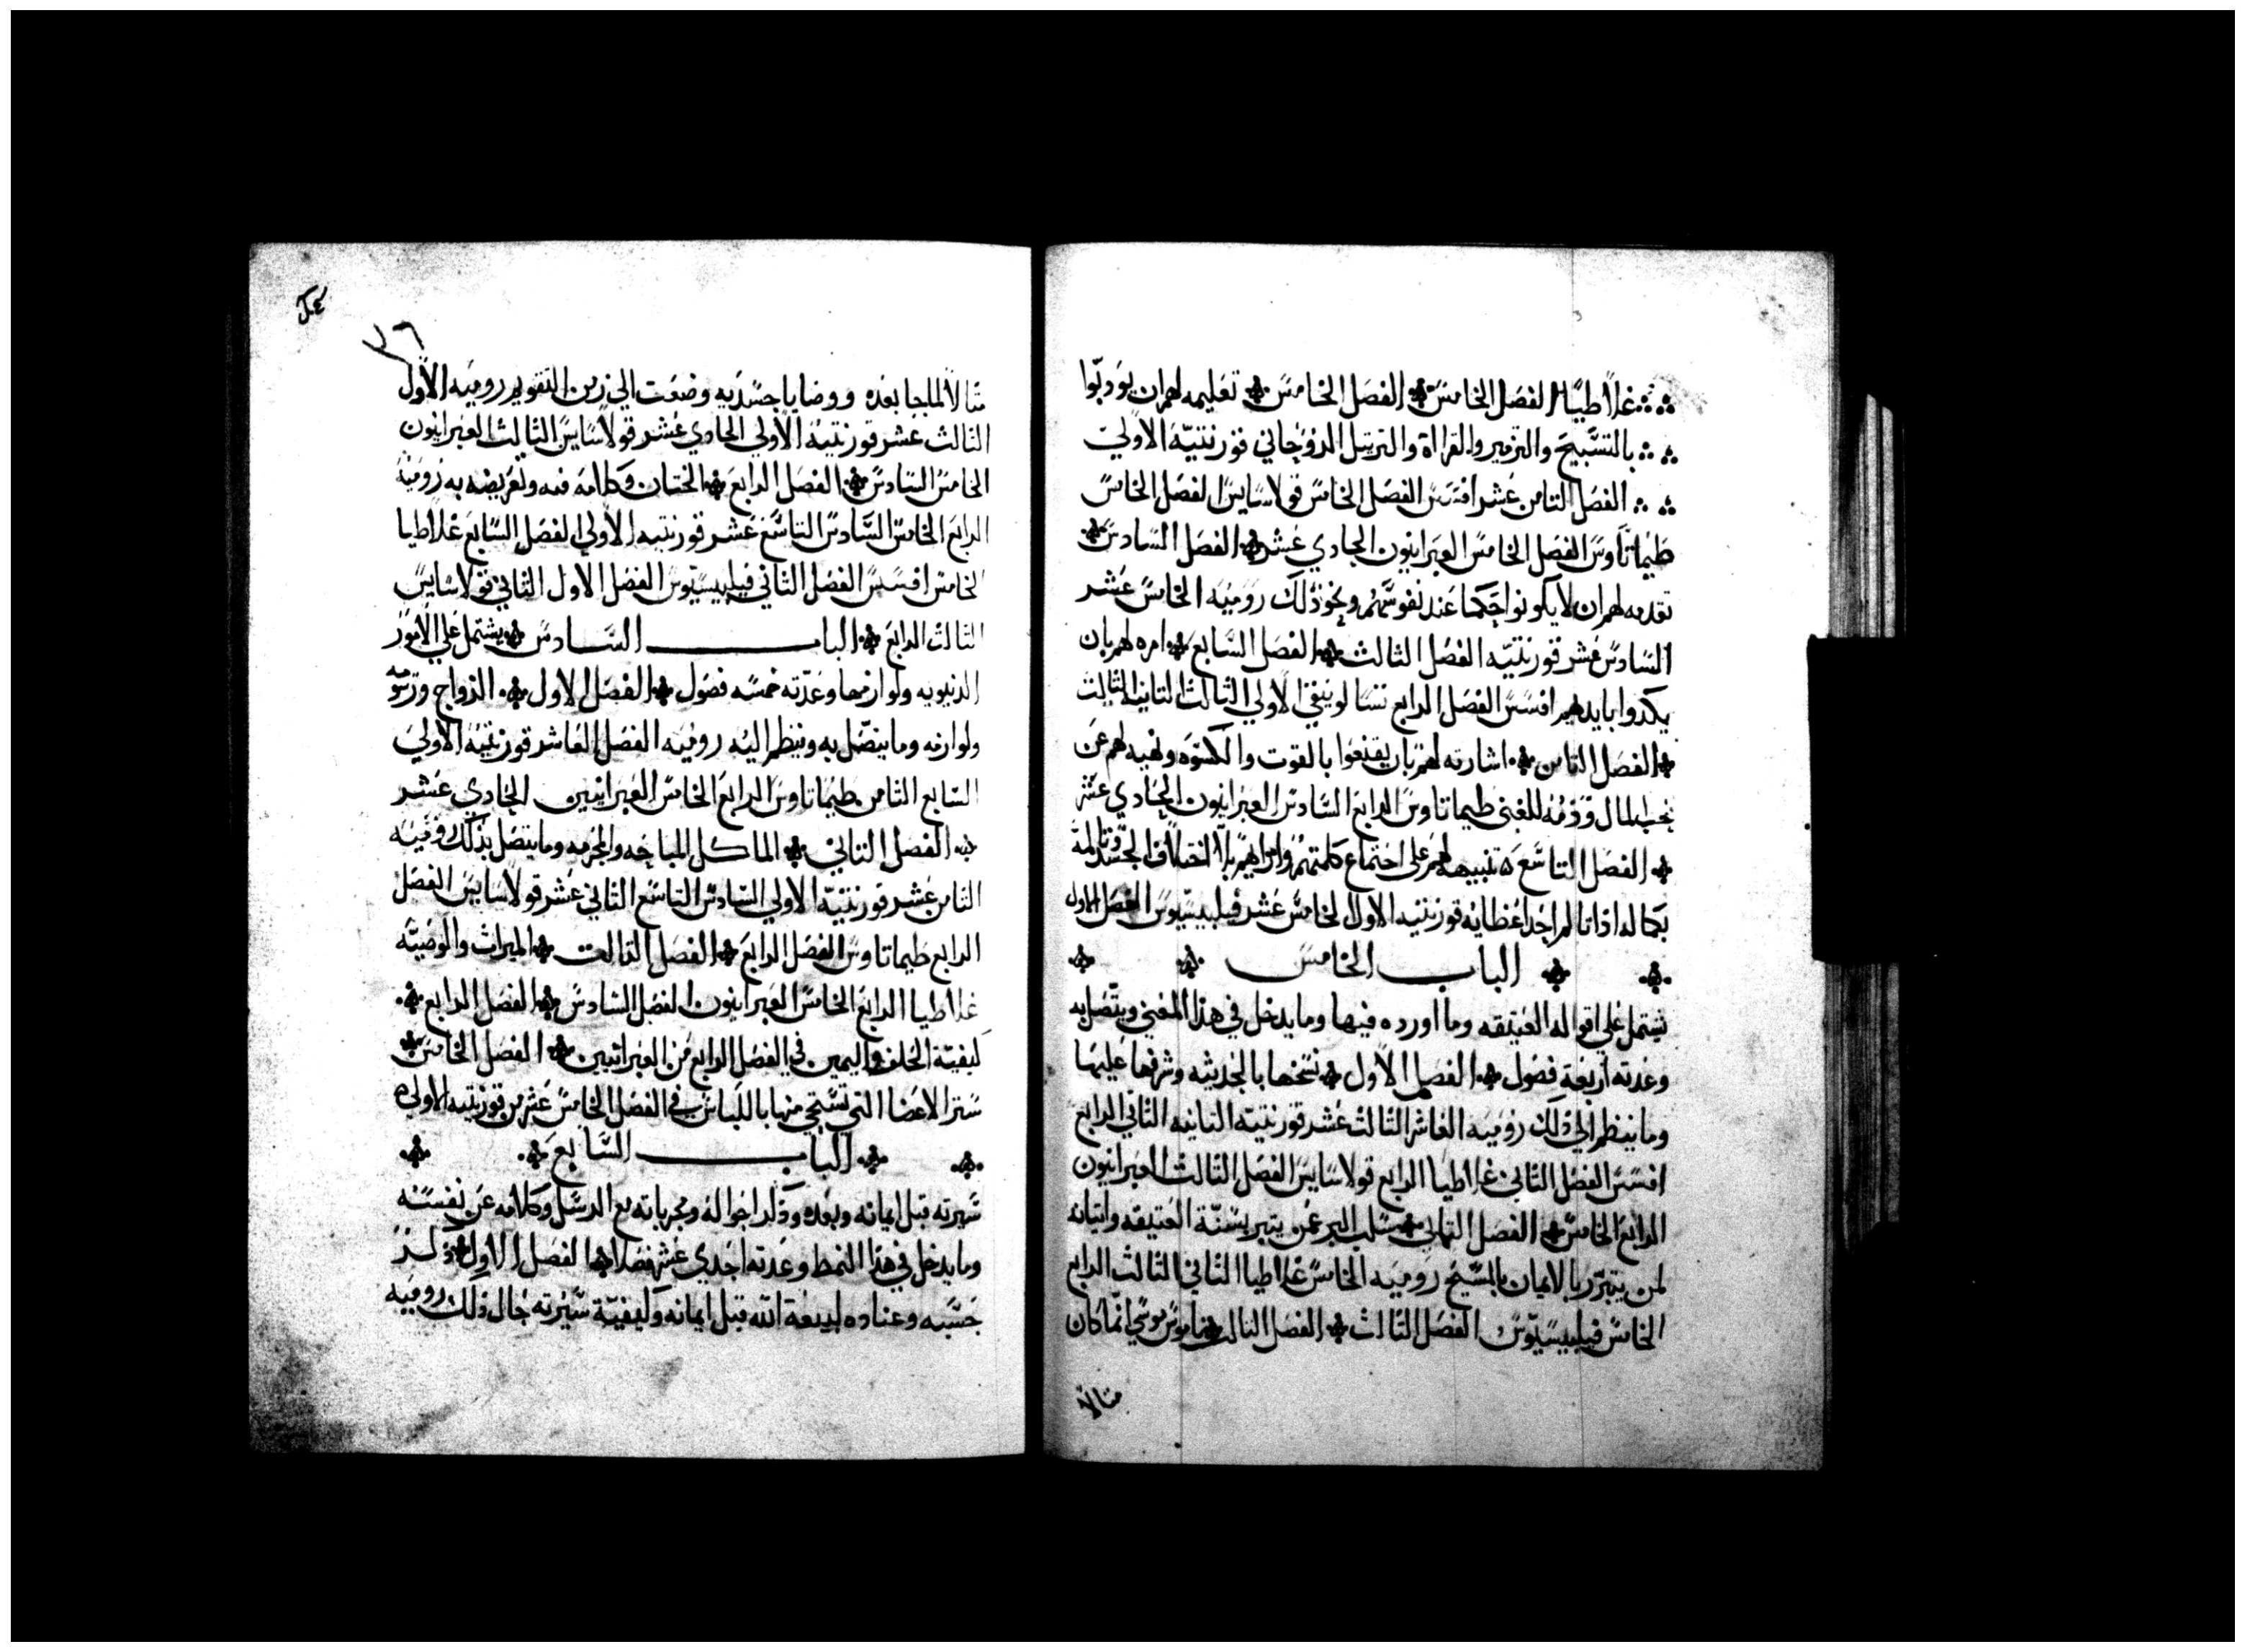 غلاطيا الفصل الخامس الفصل الخامس تعليمه لهم ان يودبوا
بالتسبيح والتزمير والقراة والترتيل الروحاني قورنتيه الاولي
الفصل الثامن عشر افسس الفصل الخامس قولاسايس الفصل الخامس
طيماتاوس الفصل الخامس العبرانيون الحادي عشر الفصل السادس
تقدمه لهم ان لا يكونوا حكما عند نفوسهم ونحو ذلك روميه الخامس عشر
السادس عشر قورنتيه الفصل الثالث الفصل السابع امره لهم بان
يكدوا بايديهم افسس الفصل الرابع تسالونيقي الاولي الثالث الثانيه الثالث
الفصل الثامن اشارته لهم بان يقنعوا بالقوت والكسوه ونهيه لهم عن
حب المال وذمه للغني طيماتاوس الرابع السادس العبرانيون الحادي عشر
الفصل التاسع تنبيهه لهم علي اجتماع كلمتهم وارايهم بلا اختلاف الجسد
بكماله اذا تالم احد اعضايه قورنتيه الاولي الخامس عشر فيليبسيوس الفصل الاول
الباب الخامس
يشتمل علي اقواله العتيقه وما اورده فيها وما يدخل في هذا المعني ويتصل به
وعدته اربعة فصول الفصل الاول نسخها بالحديثه وشرفها عليها
وما ينظر الي ذلك روميه العاشر الثالث عشر قورنتيه الثانيه الثاني الرابع
افسس الفصل الثاني غلاطيا الرابع قولاسايس الفصل الثالث العبرانيون
الرابع الخامس الفصل الثاني سلب البر عمن يتبرر بسنة العتيقه واتيانه
لمن يتبرر بالايمان بالمسيح روميه الخامس غلاطيا الثاني الثالث الرابع
الخامس فيليبسيوس الفصل الثالث الفصل الثالث ناموس موسي انما كان
مثالا
٢٦
مثالا لما جا بعده ووصايا جسديه وضعت الي زمن التقويم روميه الاول
الثالث عشر قورنتيه الاولي الحادي عشر قولاسايس الثالث العبرانيون
الخامس السادس الفصل الرابع الختان وكلامه فيه وتعريضه به روميه
الرابع الخامس السادس التاسع عشر قورنتيه الاولي الفصل السابع غلاطيا
الخامس افسس الفصل الثاني فيليبسيوس الفصل الاول الثاني قولاسايس
الثالث الرابع الباب السادس يشتمل علي الامور
الدنيويه ولوازمها وعدته خمسه فصول الفصل الاول الزواج
ولوازمه وما يتصل به وينظر اليه روميه الفصل العاشر قورنتيه الاولي
السابع الثامن طيماتاوس الرابع الخامس العبرانيين الحادي عشر
الفصل الثاني الماكل المباحه والمحرمه وما يتصل بذلك روميه
الثامن عشر قورنتيه الاولي السادس التاسع الثاني عشر قولاسايس الفصل
الرابع طيماتاوس الفصل الرابع الفصل الثالث الميراث والوصيه
غلاطيا الرابع الخامس العبرانيون الفصل السادس الفصل الرابع
كيفية الحلف واليمين في الفصل الرابع من العبرانيين الفصل الخامس
ستر الاعضا التي تستحي منها باللباس في الفصل الخامس عشر من قورنتيه الاولي
الباب السابع
سيرته قبل ايمانه وبعده وذكر احواله ومجرياته مع الرسل وكلامه عن نفسه
وما يدخل في هذا النمط وعدته احدي عشر فصلا الفصل الاول ذكر
جنسه وعناده لبيعة الله قبل ايمانه وكيفية سيرته حال ذلك روميه